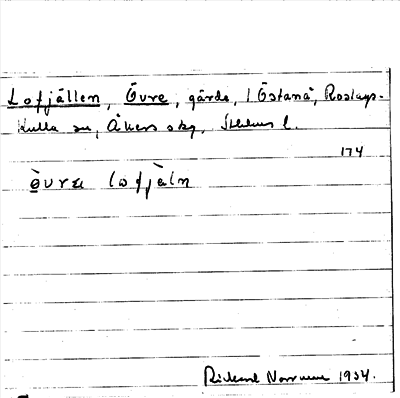 Lofjällen, Övre, gärde, i Östanå, Roslags-
Kulla sn, Åkers skg, Sthlms l.
174
òvræ lofjàln
Rickard Norrman 1934.